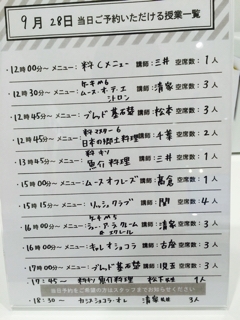 9月28日当日ご予約いただける授業一覧
・12時00分〜 メニュー：料くメニュー 講師：三井 空席数：1人
ケーキ
・12時30分〜 メニュー：ムース・オ・テ・エ シトロン 講師：清家 空席数：3人
・12時45分〜 メニュー：ブレッド基礎 講師：松本 空席数：3人
料マスター6
・12時45分〜 メニュー：日本の郷土料理 講師：千葉 空席数：2人
料キソ
・13時45分〜 メニュー：魚介料理 講師：三井 空席数：1人
・15時00分〜 メニュー：ムースオフレーズ 講師：高倉 空席数：1人
・15時15分〜 メニュー：リッシュクラブ 講師：関 空席数：4人
・16時00分〜 メニュー：シュー・ア・ラ・クレーム エクレール 講師：清家 空席数：3人
・16時00分〜 メニュー：キャレ オ ショコラ 講師：古座 空席数：3人
・17時00分〜 メニュー：ブレッド基礎 講師：児玉 空席数：3人
・17:45〜 料キソ 魚介料理 松下 1人
当日予約をご希望の方はスタッフまでお知らせください
・18:30〜 ガトーショコラ・オ・レ 清家 3人